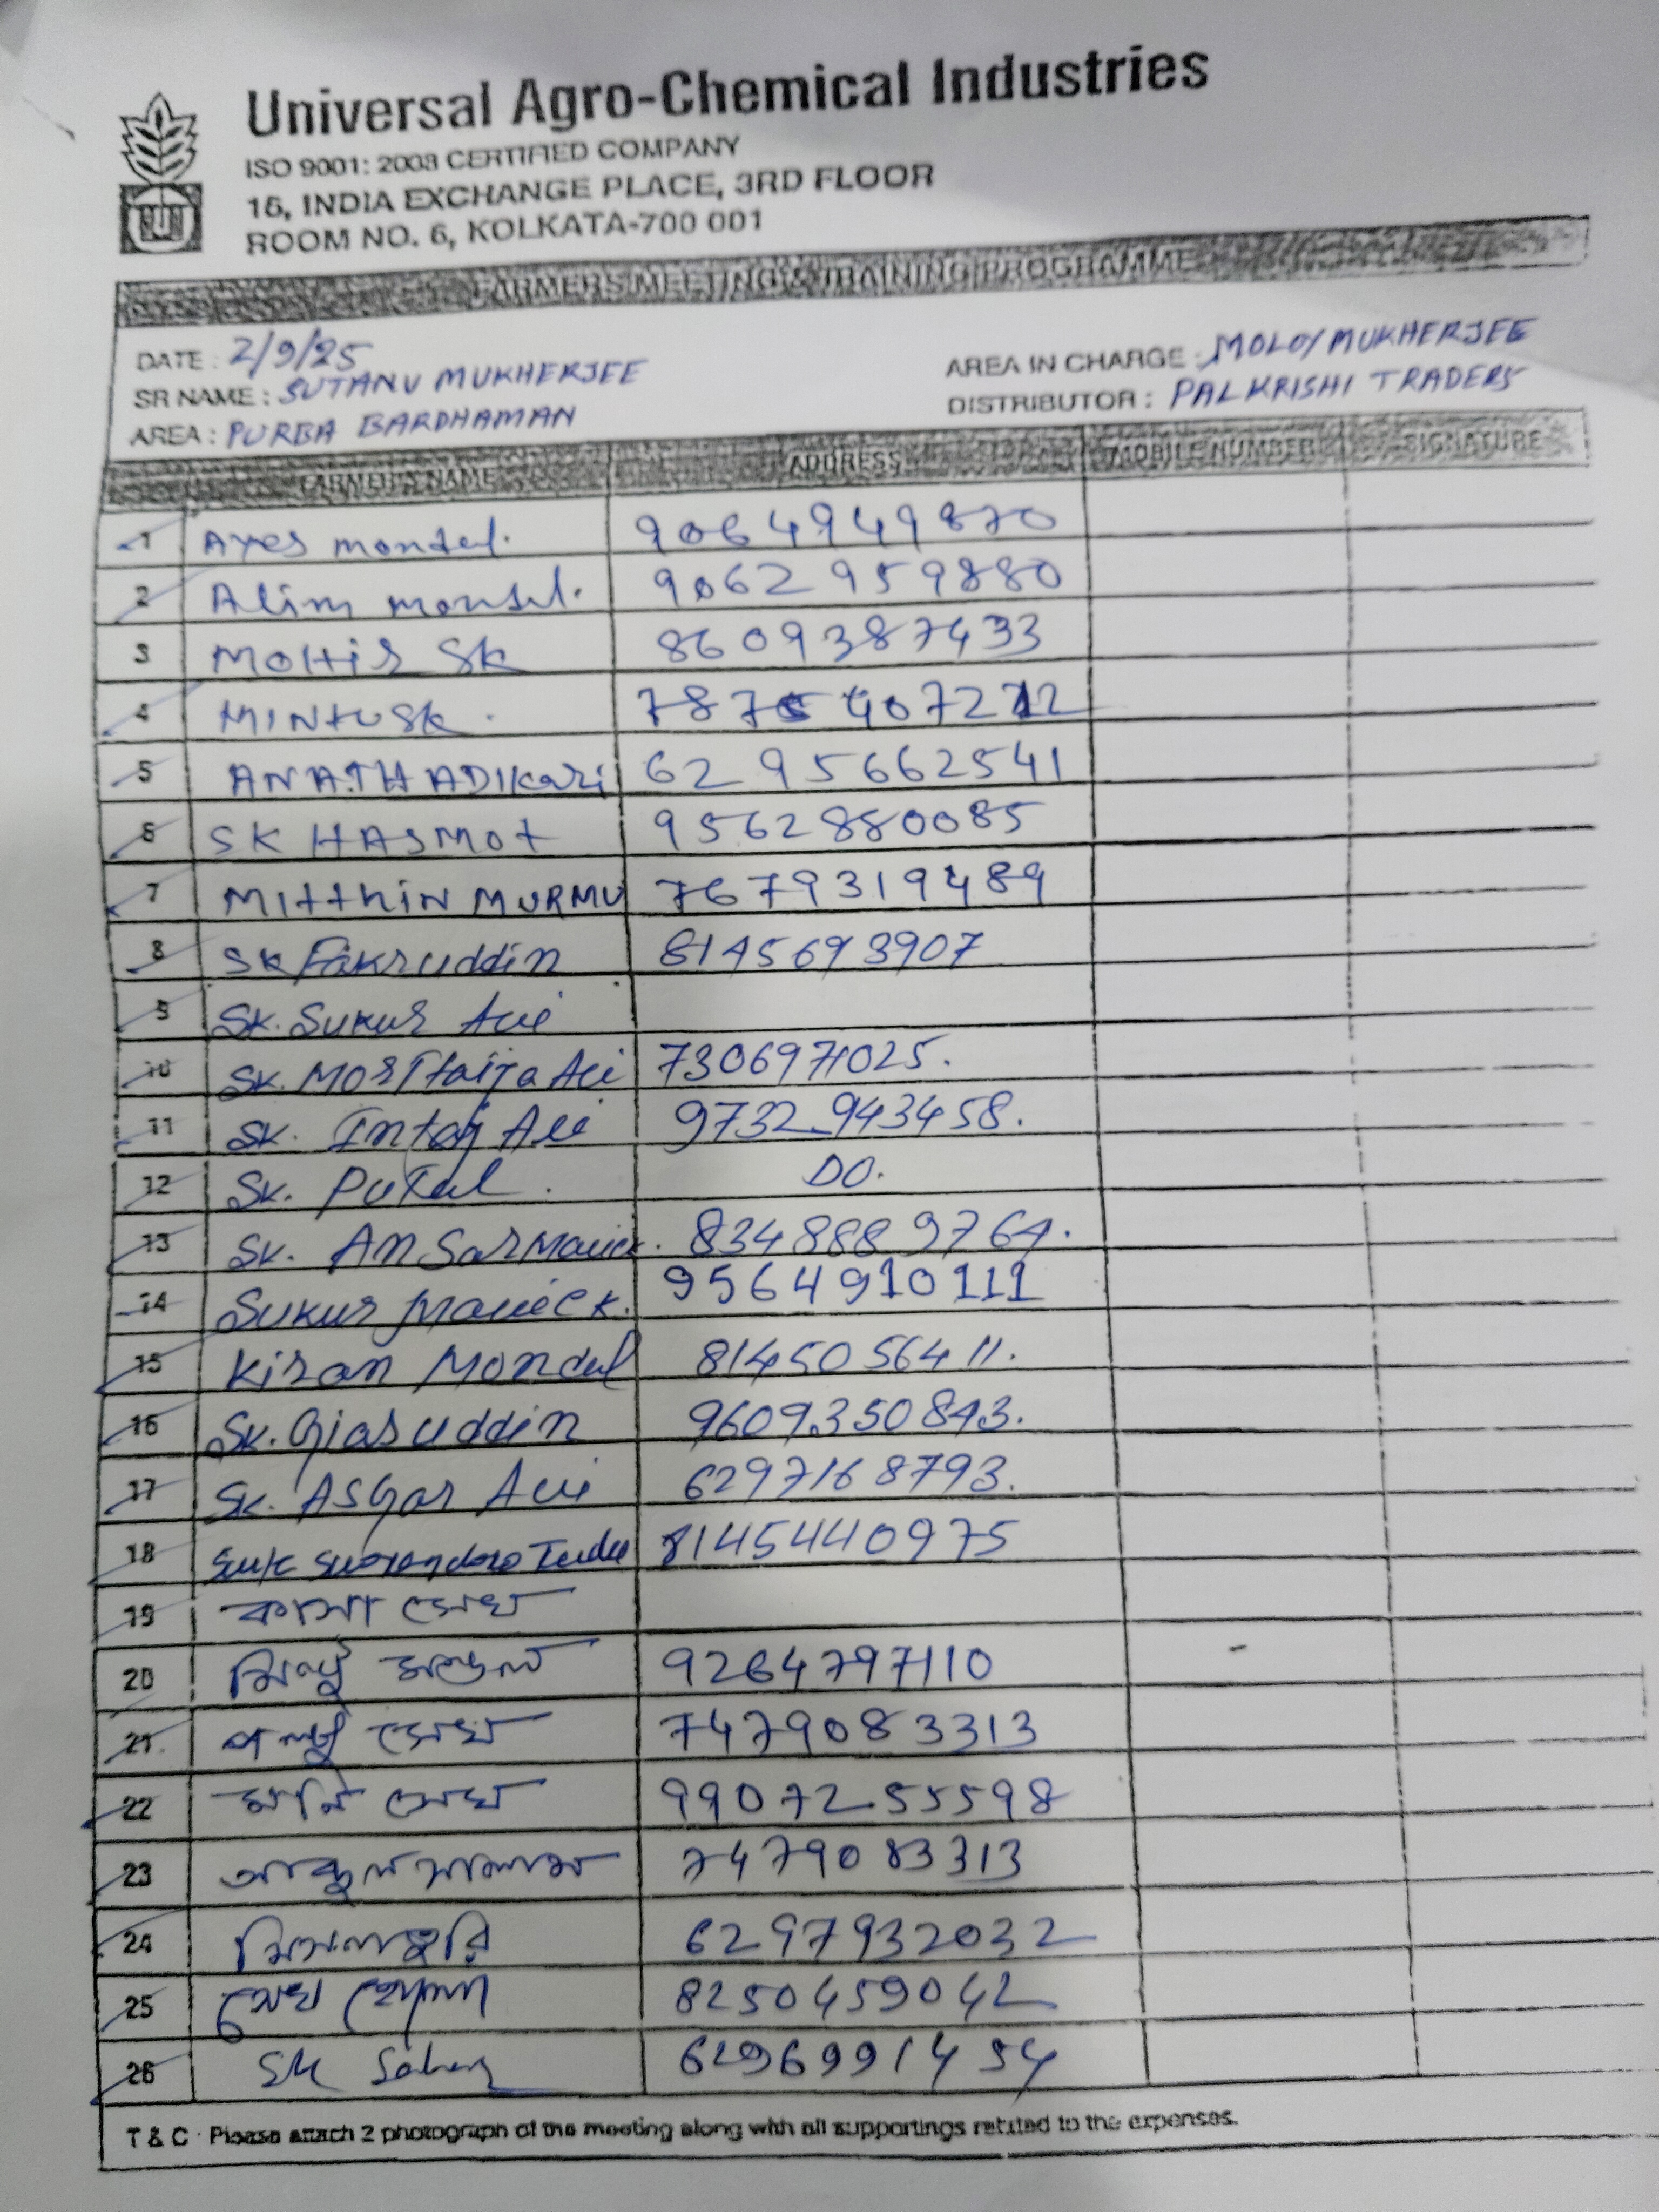 Universal Agro-Chemical Industries
ISO 9001: 2008 CERTIFIED COMPANY
16, INDIA EXCHANGE PLACE, 3RD FLOOR
ROOM NO. 6, KOLKATA-700 001
FARMERS MEETING & TRAINING PROGRAMME
DATE : 2/9/25
AREA IN CHARGE : MOLOY MUKHERJEE
SR NAME : SUTANU MUKHERJEE
DISTRIBUTOR : PAL KRISHI TRADERS
AREA : PURBA BARDHAMAN
FARMER'S NAME ADDRESS MOBILE NUMBER SIGNATURE
1 Ayes mondal. 9064949870
2 Alim mondal. 9062959880
3 MOHIR SK 8609387433
4 MINTU SK.
5 ANATH ADIKARI 6295662541
6 SK HASMOT 9562880085
7 MITTHIN MURMU 7679319489
8 SK Fakruddin 8145693907
9 SK. Sukur Ali
10 SK. Ali 7306971025.
11 SK. Intaj Ali 9732943458.
12 SK. Putul. DO.
13 SK. Ansar Mallick. 8348889764.
14 Sukur Mallick. 9564910111
15 Kiran Mondal 8145056411.
16 SK. Giasuddin 9609350843.
17 SK. ASGar Ali 6297168793.
18 Tudu 8145440975
19 কাসা সেখ
20 মিন্টু মন্ডল 9264797110
21 পল্টু সেখ 7479083313
22 মনি সেখ 9907255598
23 7479083313
24 6297932032
25 সেখ 8250459042
26 SK 6296991454
T & C : Please attach 2 photograph of the meeting along with all supportings related to the expenses.